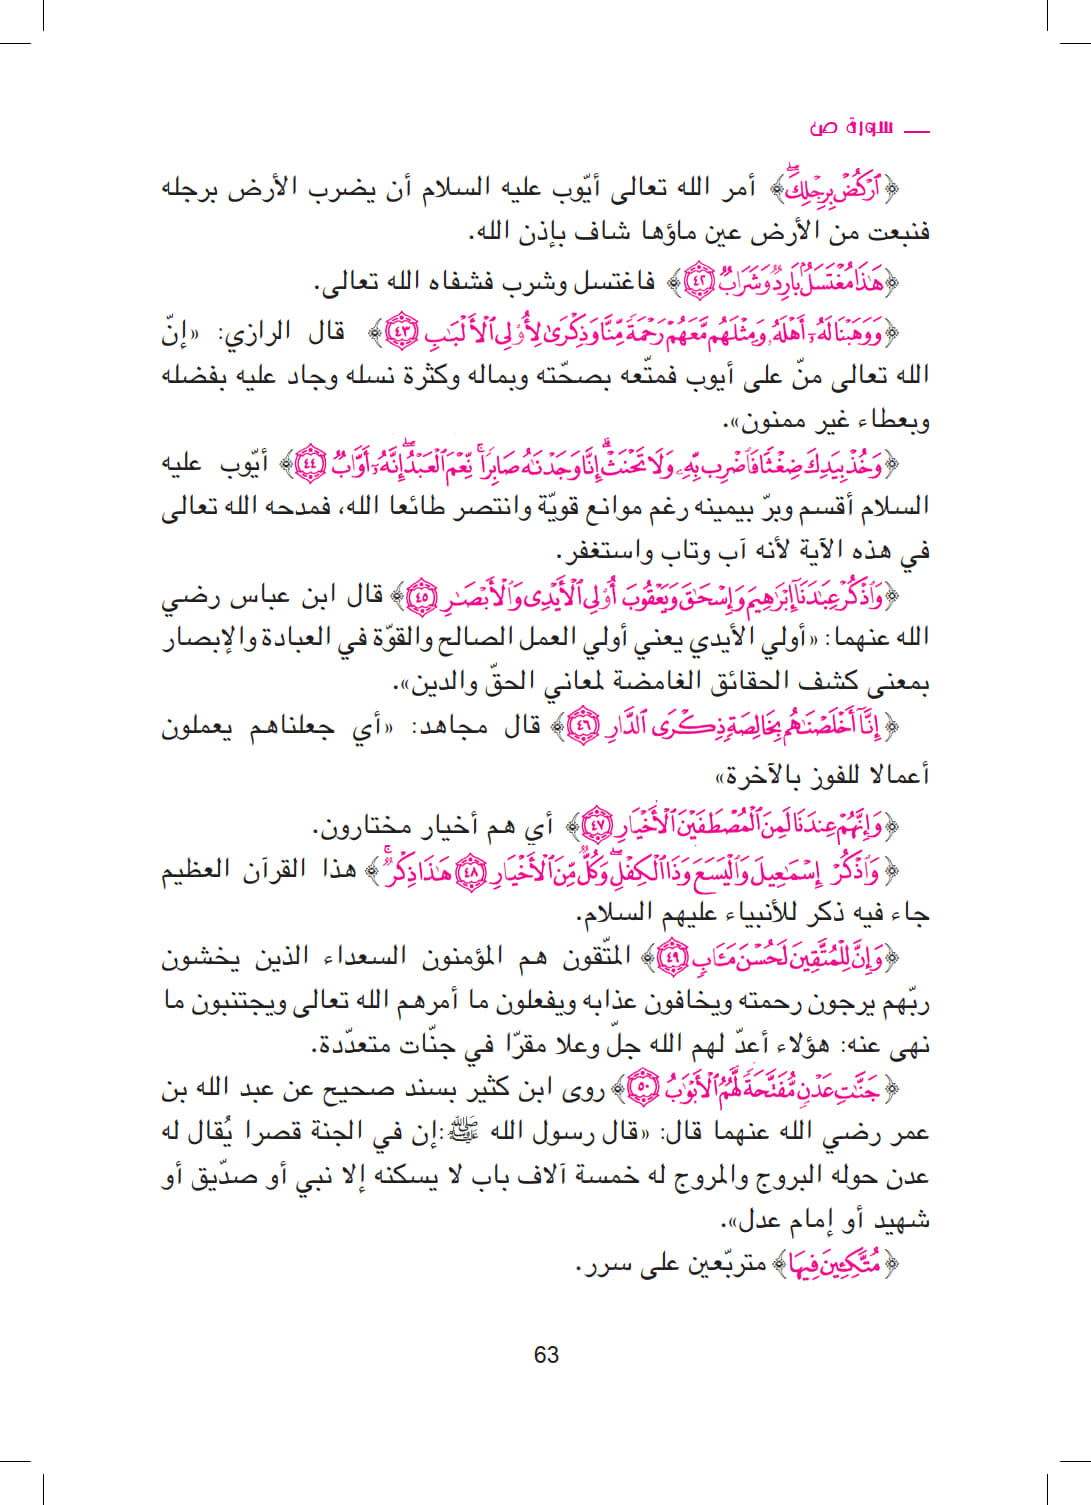 سورة ص
﴿ٱرْكُضْ بِرِجْلِكَۖ﴾ أمر الله تعالى أيّوب عليه السلام أن يضرب الأرض برجله
فنبعت من الأرض عين ماؤها شاف بإذن الله.
﴿هَٰذَا مُغْتَسَلُۢ بَارِدٞ وَشَرَابٞ ٤٢﴾ فاغتسل وشرب فشفاه الله تعالى.
﴿وَوَهَبْنَا لَهُۥٓ أَهْلَهُۥ وَمِثْلَهُم مَّعَهُمْ رَحْمَةٗ مِّنَّا وَذِكْرَىٰ لِأُوْلِي ٱلْأَلْبَٰبِ ٤٣﴾ قال الرازي: «إنّ
الله تعالى منّ على أيوب فمتّعه بصحّته وبماله وكثرة نسله وجاد عليه بفضله
وبعطاء غير ممنون».
﴿وَخُذْ بِيَدِكَ ضِغْثٗا فَٱضْرِب بِّهِۦ وَلَا تَحْنَثْۗ إِنَّا وَجَدْنَٰهُ صَابِرٗاۚ نِّعْمَ ٱلْعَبْدُۖ إِنَّهُۥٓ أَوَّابٞ ٤٤﴾ أيّوب عليه
السلام أقسم وبرّ بيمينه رغم موانع قويّة وانتصر طائعا الله، فمدحه الله تعالى
في هذه الآية لأنه آب وتاب واستغفر.
﴿وَٱذْكُرْ عِبَٰدَنَآ إِبْرَٰهِيمَ وَإِسْحَٰقَ وَيَعْقُوبَ أُوْلِي ٱلْأَيْدِي وَٱلْأَبْصَٰرِ ٤٥﴾ قال ابن عباس رضي
الله عنهما: «أولي الأيدي يعني أولي العمل الصالح والقوّة في العبادة والإبصار
بمعنى كشف الحقائق الغامضة لمعاني الحقّ والدين».
﴿إِنَّآ أَخْلَصْنَٰهُم بِخَالِصَةٖ ذِكْرَى ٱلدَّارِ ٤٦﴾ قال مجاهد: «أي جعلناهم يعملون
أعمالا للفوز بالآخرة»
﴿وَإِنَّهُمْ عِندَنَا لَمِنَ ٱلْمُصْطَفَيْنَ ٱلْأَخْيَارِ ٤٧﴾ أي هم أخيار مختارون.
﴿وَٱذْكُرْ إِسْمَٰعِيلَ وَٱلْيَسَعَ وَذَا ٱلْكِفْلِۖ وَكُلّٞ مِّنَ ٱلْأَخْيَارِ ٤٨ هَٰذَا ذِكْرٞۚ﴾ هذا القرآن العظيم
جاء فيه ذكر للأنبياء عليهم السلام.
﴿وَإِنَّ لِلْمُتَّقِينَ لَحُسْنَ مَـَٔابٖ ٤٩﴾ المتّقون هم المؤمنون السعداء الذين يخشون
ربّهم يرجون رحمته ويخافون عذابه ويفعلون ما أمرهم الله تعالى ويجتنبون ما
نهى عنه: هؤلاء أعدّ لهم الله جلّ وعلا مقرّا في جنّات متعدّدة.
﴿جَنَّٰتِ عَدْنٖ مُّفَتَّحَةٗ لَّهُمُ ٱلْأَبْوَٰبُ ٥٠﴾ روى ابن كثير بسند صحيح عن عبد الله بن
عمر رضي الله عنهما قال: «قال رسول الله ﷺ:إن في الجنة قصرا يُقال له
عدن حوله البروج والمروج له خمسة آلاف باب لا يسكنه إلا نبي أو صدّيق أو
شهيد أو إمام عدل».
﴿مُتَّكِـِٔينَ فِيهَا﴾ متربّعين على سرر.
63